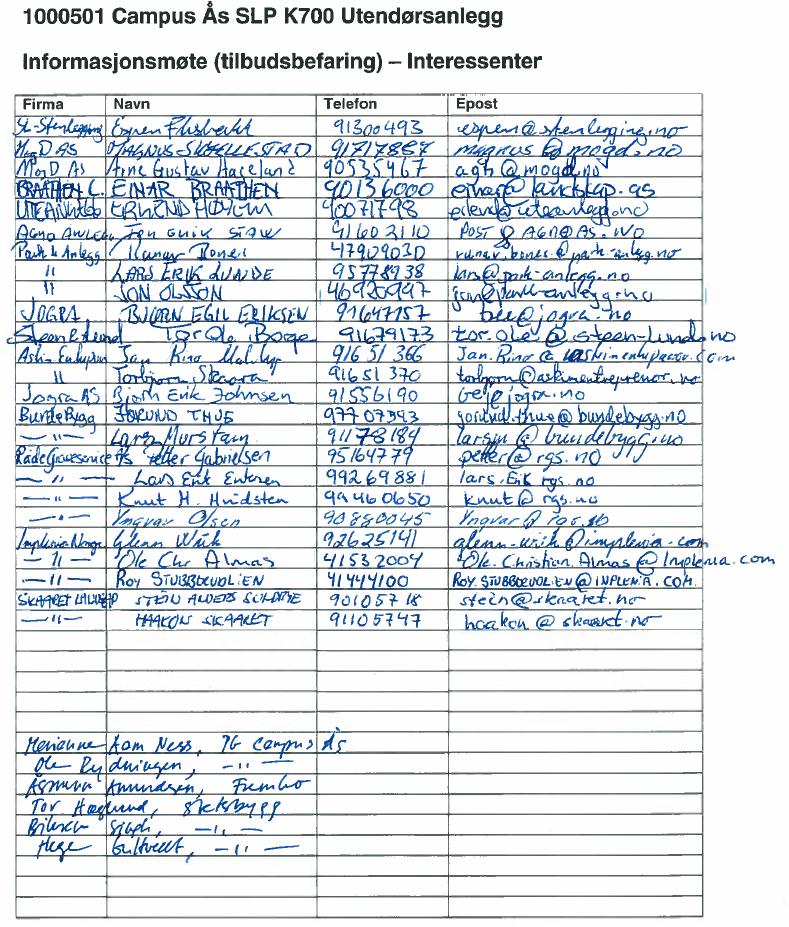 1000501 Campus Ås SLP K700 Utendørsanlegg
Informasjonsmøte (tilbudsbefaring) – Interessenter
Firma Navn Telefon Epost
Espen 91300493 espen@stenlegging.no
MogD AS MAGNUS 91717887 magnus@mogd.no
MogD AS Arne Gustav Hageland 90535467 agh@mogd.no
BRAATHEN L. EINAR BRAATHEN 90136000 einar@landskap.as
ERLEND HØYEM 40071798 erlend@uteanlegg.no
AGNO ANLEGG 91602110 POST @ AGNO AS.NO
Park & Anlegg Runar Bones 47909030 runar.bones@park-anlegg.no
" LARS ERIK LUNDE 95778938 lars@park-anlegg.no
" JON OLSSON 46920997 jon@park-anlegg.no
JOGRA BJØRN EGIL ERIKSEN 91647157 bee@jogra.no
Steen & Lund Tor Ole Borge 91679173 tor.ole@steen-lund.no
Jan 91651366
" Torbjørn Skaara 91651370 torbjorn@askimentreprenor.no
Jogra AS Bjørn Erik Johnsen 91556190 jogra.no
Bunde Bygg JØRUND THUE 97707393 jorund.thue@bundebygg.no
— " — Lars Murstam 91178184 @bundebygg.no
Råde Graveservice As Petter Gabrielsen 95164779 petter@rgs.no
— " — Lars Erik 99269881 lars.Eik rgs.no
— " — Knut M. Hvidsten 99460650 knut@rgs.no
— " — Yngvar Olsen 90880045 Yngvar@
Implenia Norge Glenn Wiik 92625141 glenn.wiik@implenia.com
— " — Ole Chr Almas 41532004 Ole.Christian.Almas@Implenia.com
— " — ROY STUBBDEVOLIEN 41444100 ROY.STUBBDEVOLIEN@INPLENIA.COM.
SKAARET STEIN ANDERS 90105718 stein@skaaret.no
— " — HAAKON SKAARET 91105747 haakon@skaaret.no
Ness, PG Campus Ås
Ole Rydningen, — " —
Amundsen,
Tor Haglund, Statsbygg
— " —
Hege — " —